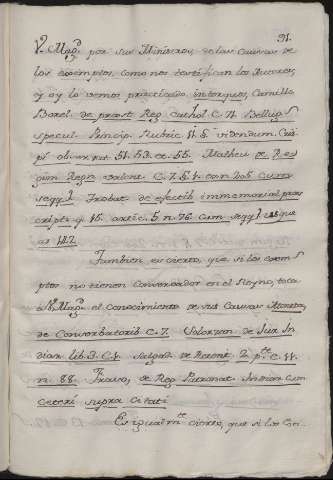 91.
V. Mag.d por sus Ministros, en las Causas de
los exemptos, como nos testifican los Autores,
y oy lo vemos practicado, inter quos, Camillo
Borel. de præst. Reg. Cathol. C. 71. Bellug.
specul. Princip. Rubric. 11. §. videndum. Cres-
pi observat. 51. 53. et 55. Matheu de Re-
gim. Regn. Valent. C. 7. §. 1. an. 205. cum
seqq. Trobat. de effectib. immemorial. præs-
cript. q. 16. artic. 5. n. 76. cum seqq.
142.
Tambien es cierto, que si los exem-
ptos no tienen Conservador en el Reyno, toca
a V. Mag.d el conocimiento de sus Causas
de Conservatorib. C. 7. Solorzan. de Jur. In-
diar. lib. 3. C. Salgad. de Retent. 2. p.te C. 11.
n. 88. Frasso, de Reg. Patronat. Indiar. cum
ceteri supra citati
Es igualm.te cierto, que si los Con-